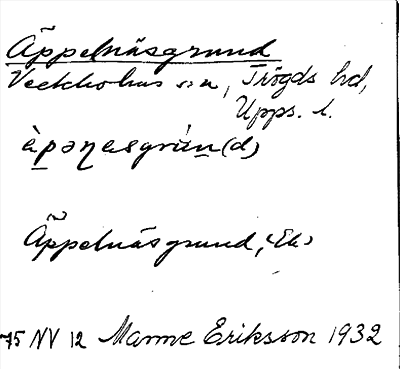 Äppelnäsgrund
Veckholms sn, Trögds hd,
Upps. l.
àpənesgrún(d)
Äppelnäsgrund, (Ek)
75 NV 12 Manne Eriksson 1932